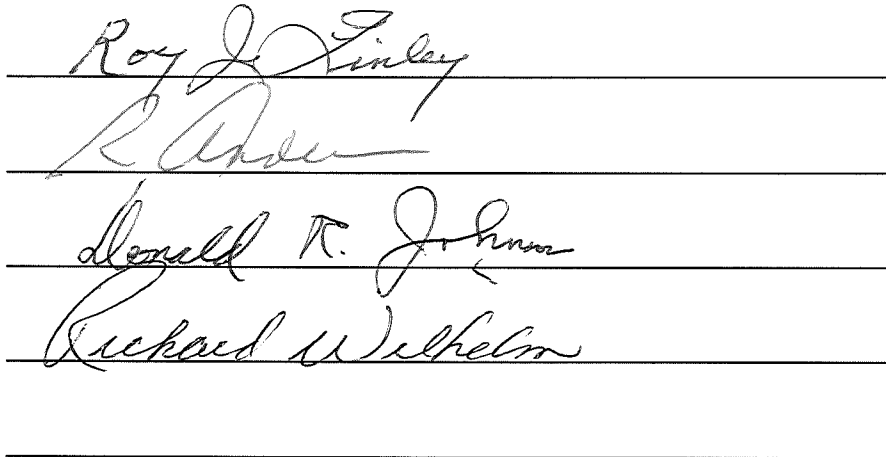 Roy J. Finley
R
Donald R. Johnson
Richard Wilhelm